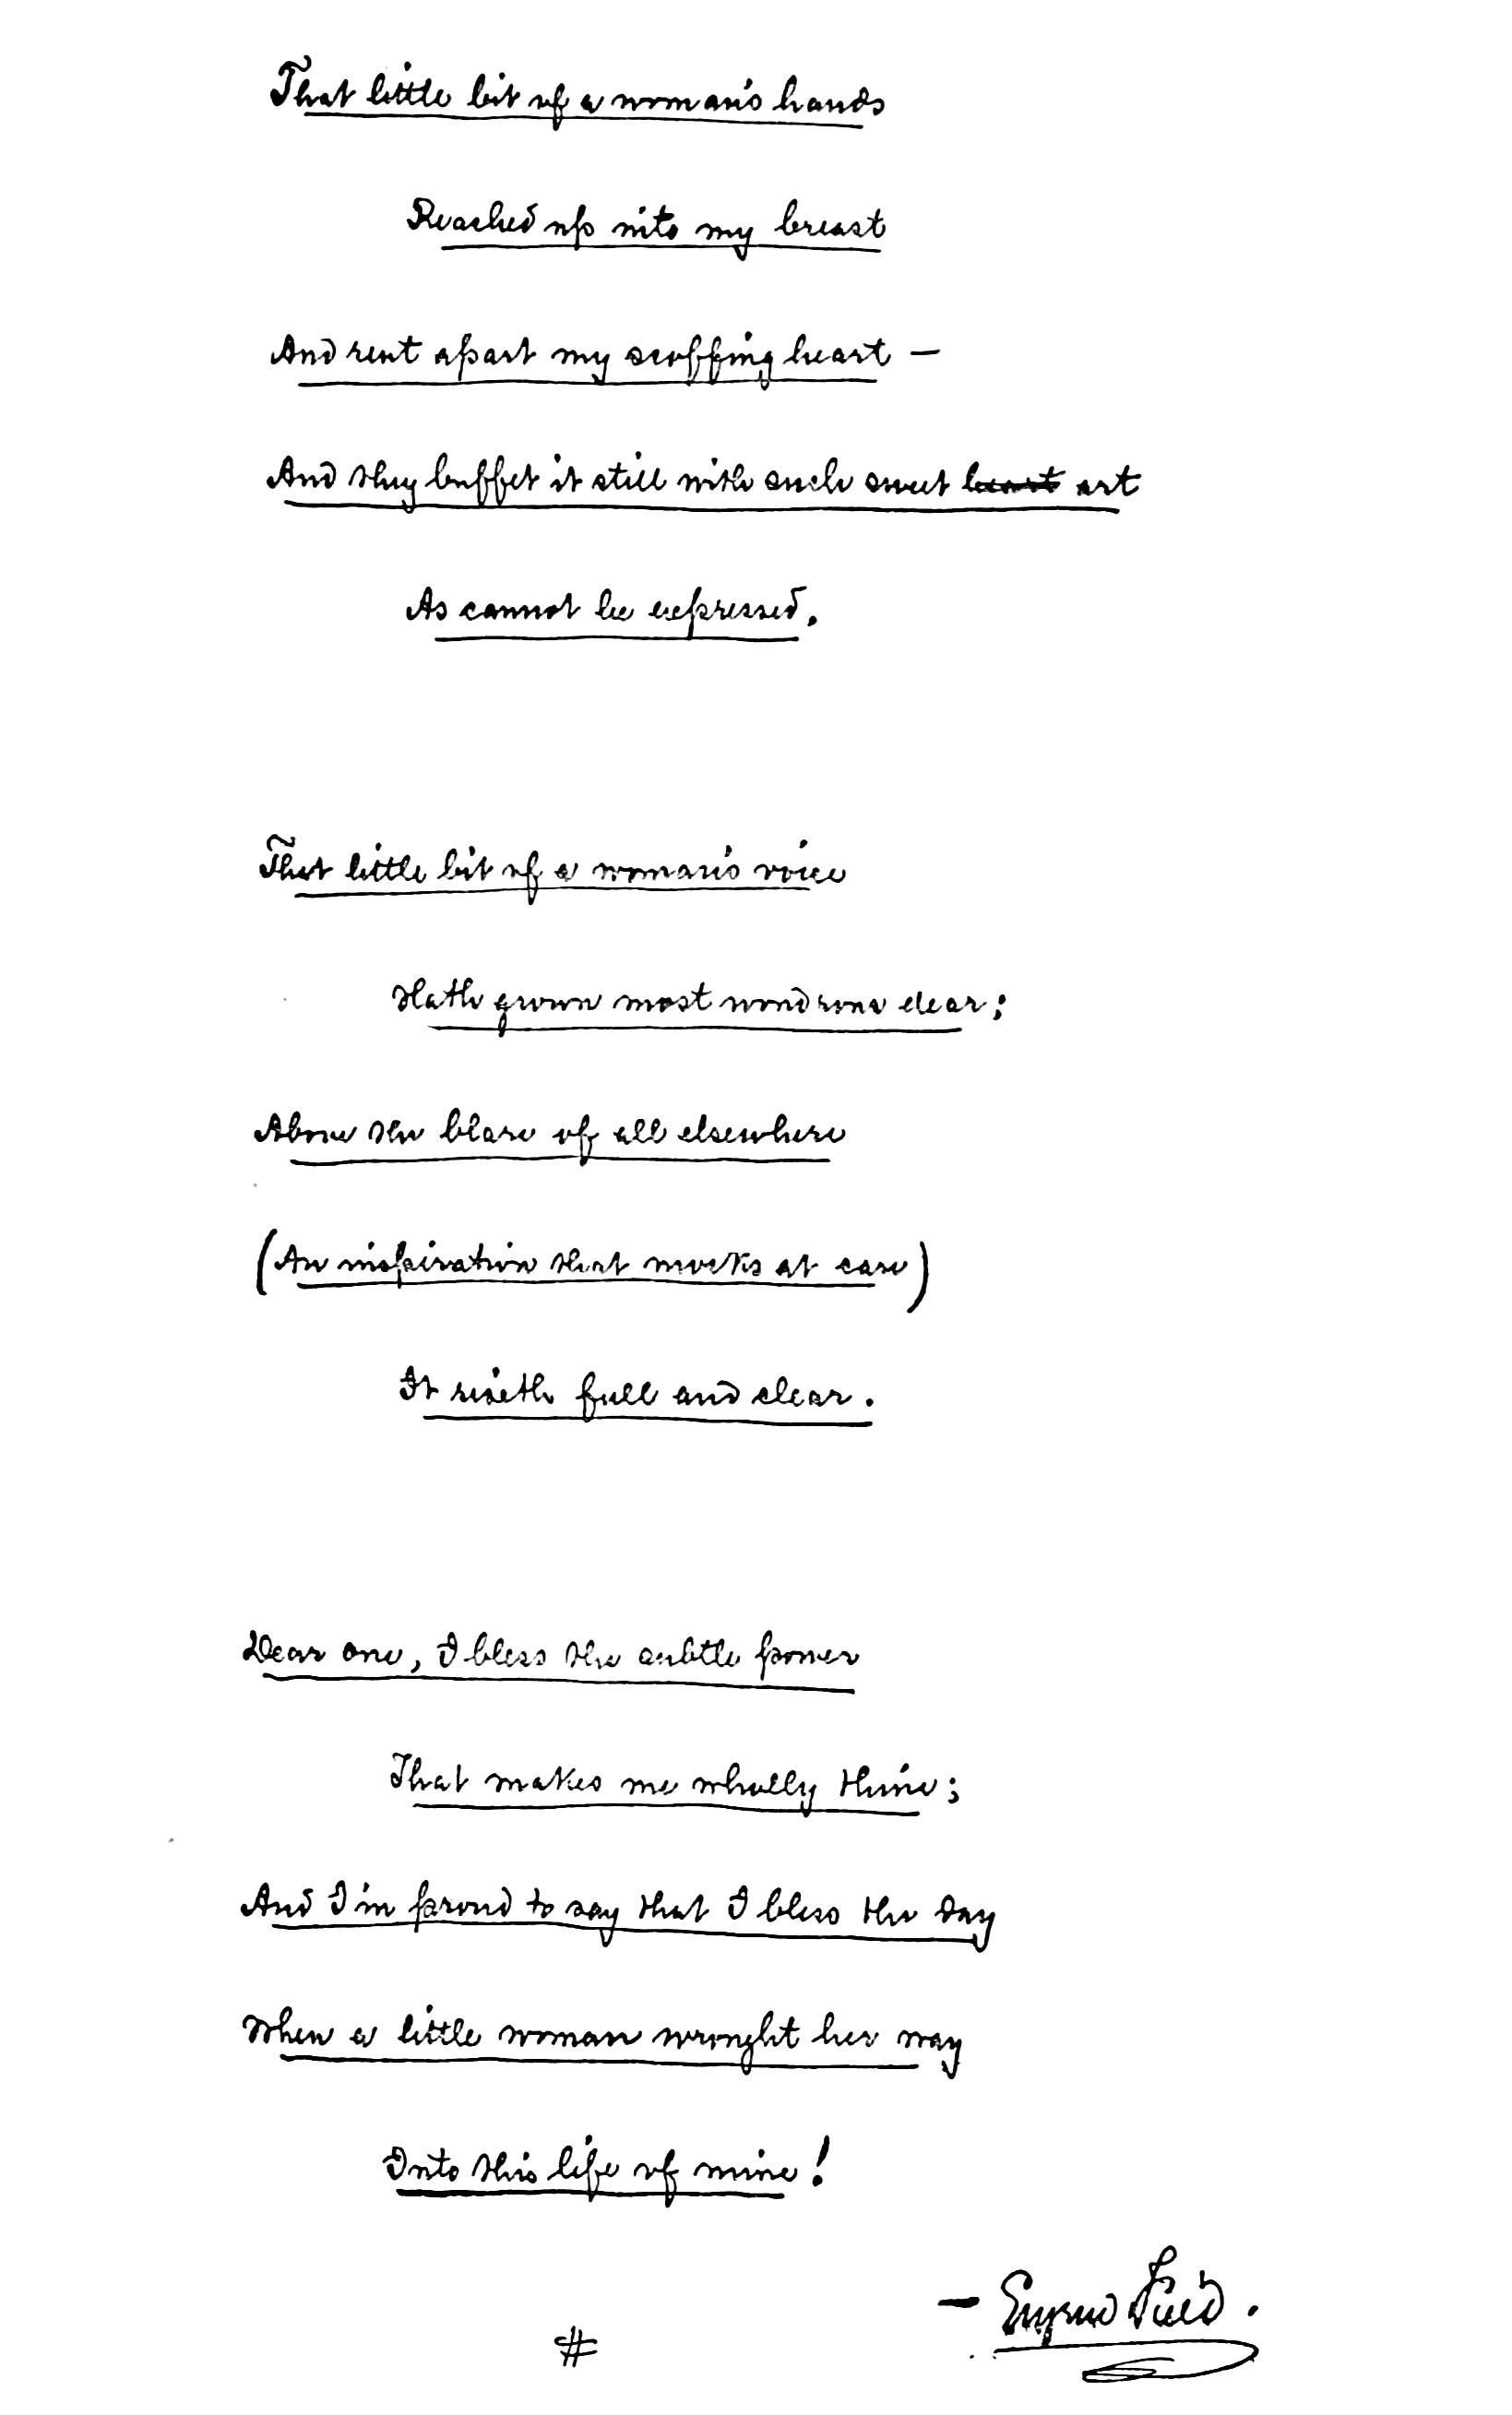 That little bit of a woman's hands
Reached up into my breast
And rent apart my scoffing heart —
And they buffet it still with such sweet heart art
As cannot be expressed.
That little bit of a woman's voice
Hath grown most wondrous dear;
Above the blare of all elsewhere
(An inspiration that mocks at care)
It riseth full and clear.
Dear one, I bless the subtle power
That makes me wholly thine;
And I'm proud to say that I bless the day
When a little woman wrought her way
Into this life of mine!
— Eugene Field.
#